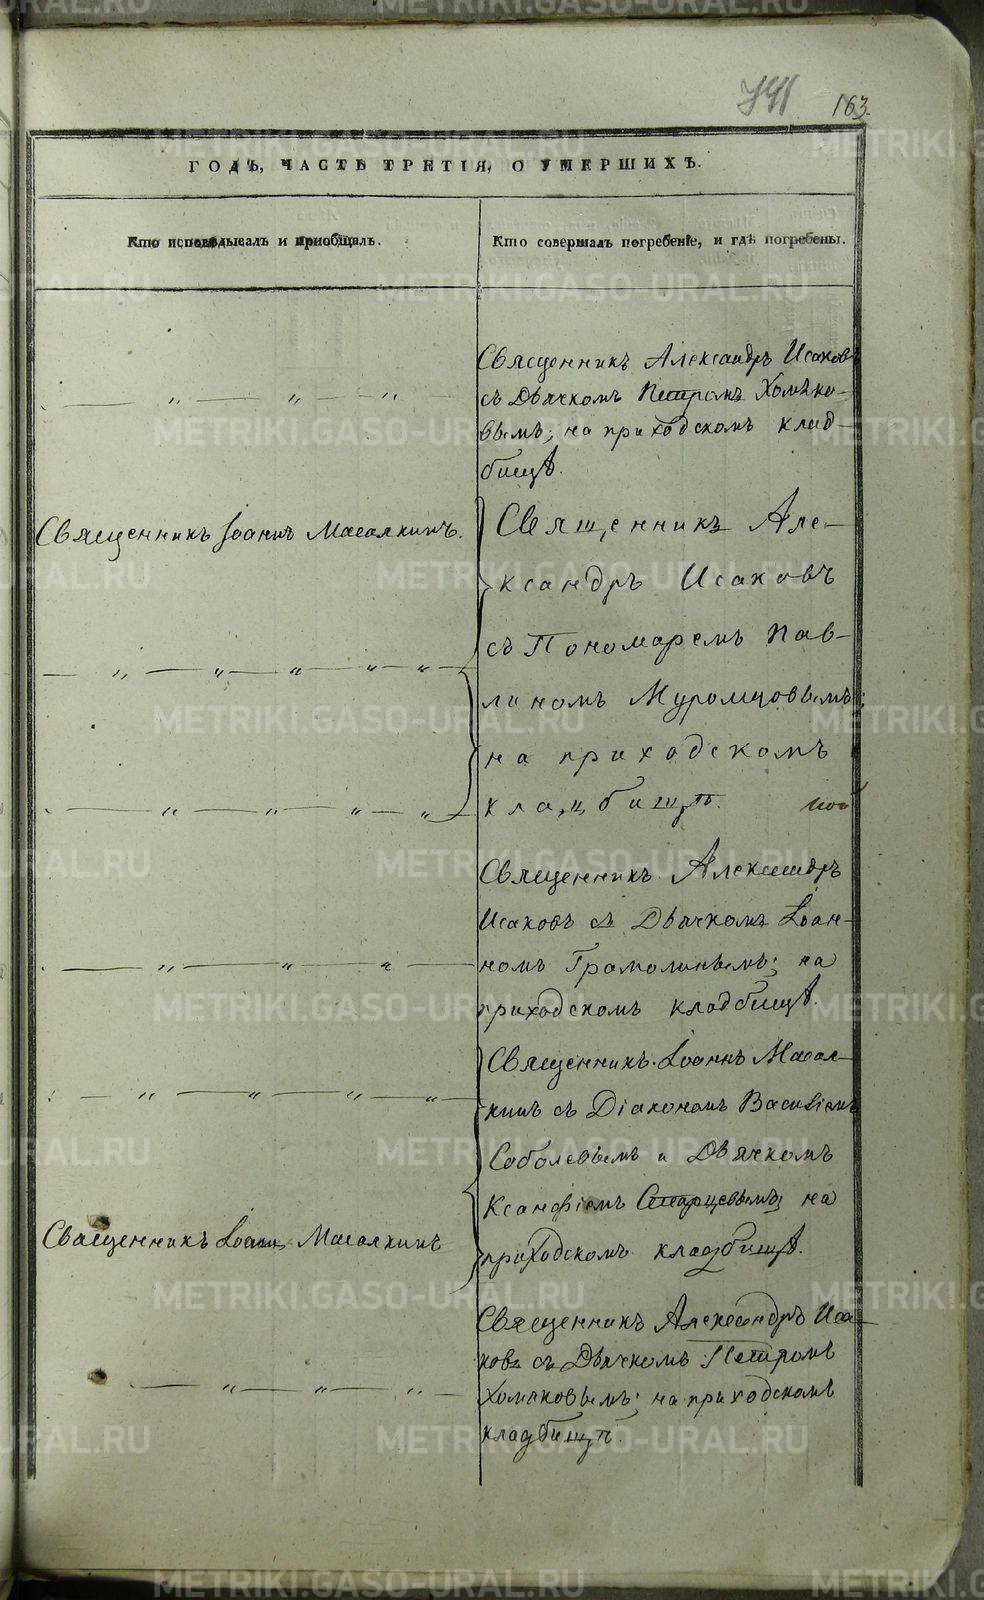 741
163.
ГОДЪ, ЧАСТЬ ТРЕТІЯ, О УМЕРШИХЪ.
Кто исповѣдывалъ и пріобщалъ.
Кто совершалъ погребеніе, и гдѣ погребены.
Священникъ Александръ Исаковъ
съ Дьячкомъ Петромъ Хомяко-
вымъ; на приходскомъ клад-
бищѣ.
Священникъ Іоаннъ Масалкинъ.
Священникъ Але-
ксандръ Исаковъ
съ Пономаремъ Пав-
линомъ Муромцовымъ;
на приходскомъ
кладбищѣ.
Священникъ Александръ
Исаковъ съ Дьячкомъ Іоан-
номъ Грамолинымъ; на
приходскомъ кладбищѣ.
Священникъ Іоаннъ Масал-
кинъ съ Діакономъ Василіемъ
Соболевымъ и Дьячкомъ
Ксанфіемъ Старцевымъ; на
приходскомъ кладбищѣ.
Священникъ Іоаннъ Масалкинъ
Священникъ Александръ Иса-
ковъ съ Дьячкомъ Петромъ
Хомяковымъ; на приходскомъ
кладбищѣ.
METRIKI.GASO-URAL.RU